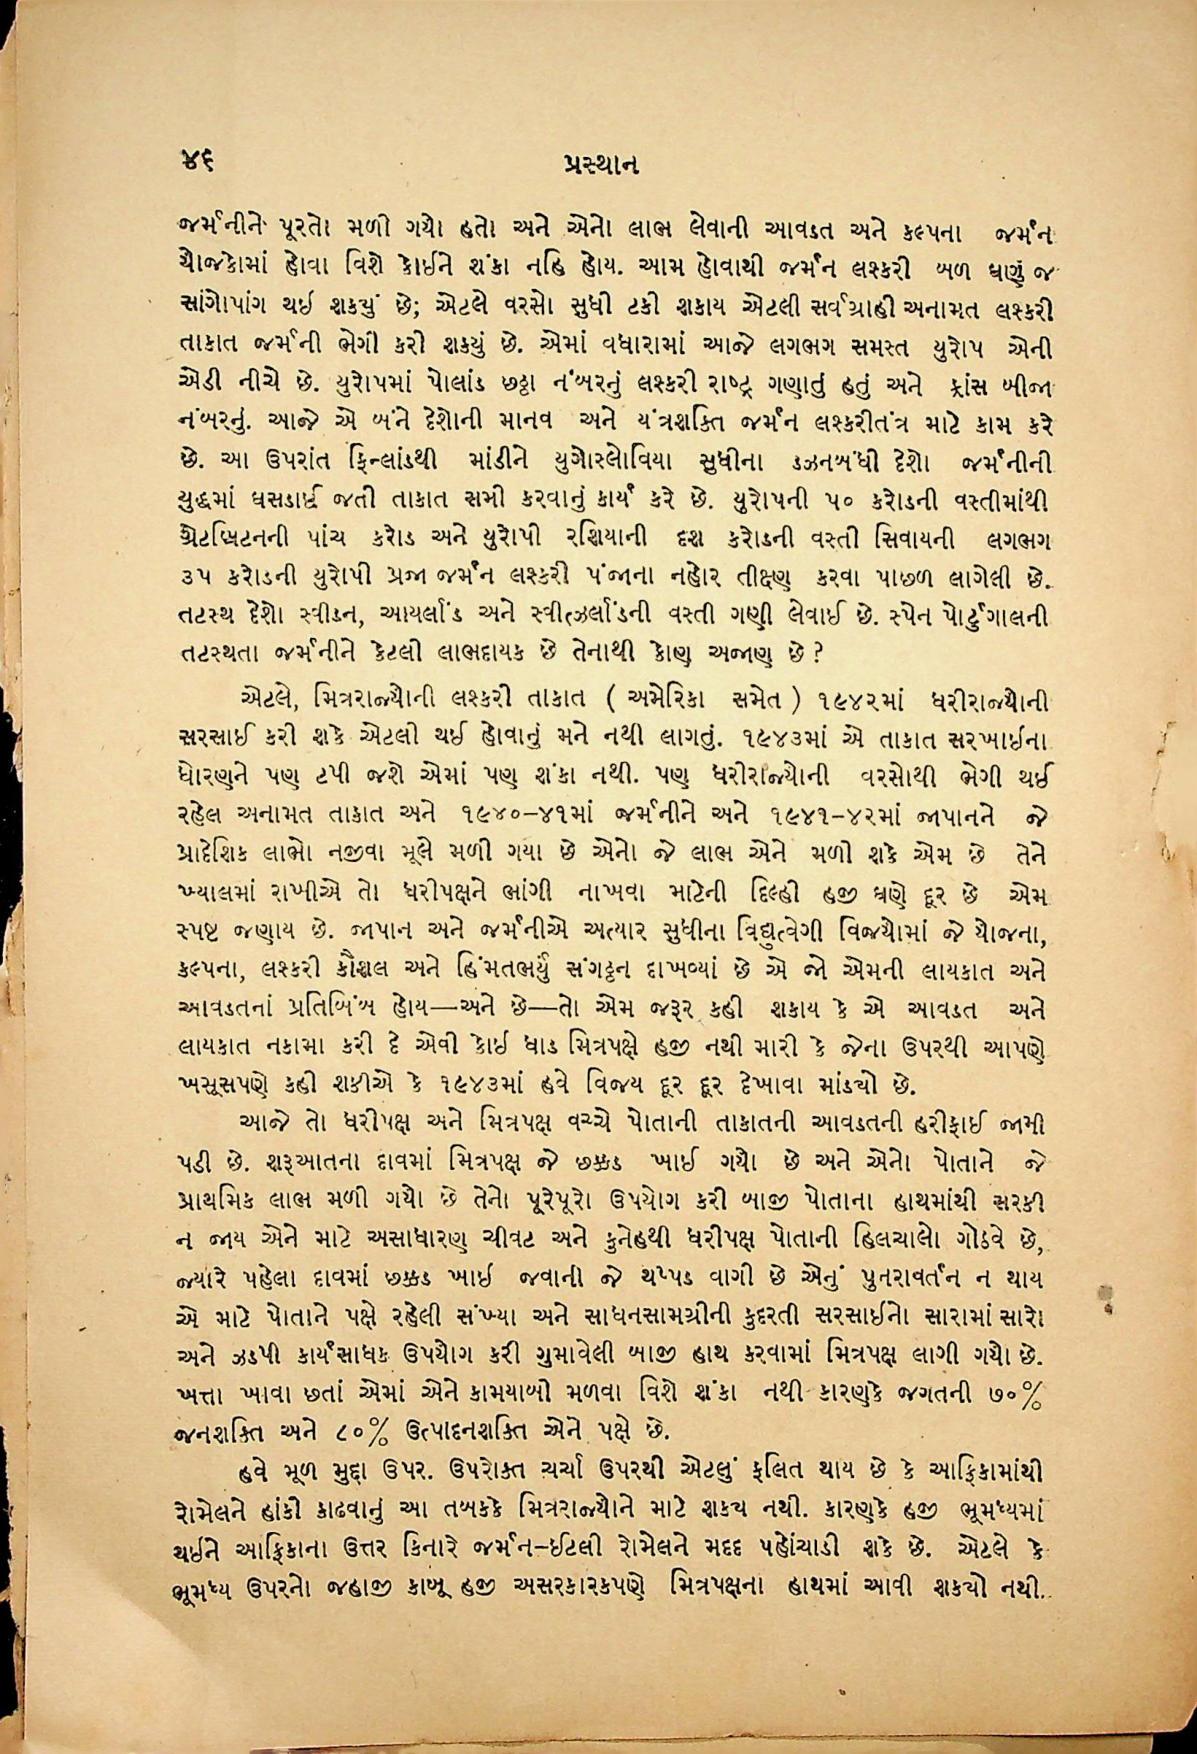 ૪૬
પ્રસ્થાન
જર્મનીને પૂરતો મળી ગયો હતો અને એનો લાભ લેવાની આવડત અને કલ્પના જર્મન
યોજકોમાં હોવા વિશે કોઈને શંકા નહિ હોય. આમ હોવાથી જર્મન લશ્કરી બળ ઘણું જ
સાંગોપાંગ થઈ શકયું છે; એટલે વરસો સુધી ટકી શકાય એટલી સર્વગ્રાહી અનામત લશ્કરી
તાકાત જર્મની ભેગી કરી શકયું છે. એમાં વધારામાં આજે લગભગ સમસ્ત યુરોપ એની
એડી નીચે છે. યુરોપમાં પોલાંડ છઠ્ઠા નંબરનું લશ્કરી રાષ્ટ્ર ગણાતું હતું અને ફ્રાંસ બીજા
નંબરનું. આજે એ બંને દેશોની માનવ અને યંત્રશક્તિ જર્મન લશ્કરીતંત્ર માટે કામ કરે
છે. આ ઉપરાંત ફિન્લાંડથી માંડીને યુગોસ્લોવિયા સુધીના ડઝનબંધી દેશો જર્મનીની
યુદ્ધમાં ઘસડાઈ જતી તાકાત સમી કરવાનું કાર્ય કરે છે. યુરોપની ૫૦ કરોડની વસ્તીમાંથી
ગ્રેટબ્રિટનની પાંચ કરોડ અને યુરોપી રશિયાની દશ કરોડની વસ્તી સિવાયની લગભગ
૩૫ કરોડની યુરોપી પ્રજા જર્મન લશ્કરી પંજાના નહોર તીક્ષ્ણ કરવા પાછળ લાગેલી છે.
તટસ્થ દેશો સ્વીડન, આયર્લાંડ અને સ્વીત્ઝર્લાંડની વસ્તી ગણી લેવાઈ છે. સ્પેન પોર્ટુગાલની
તટસ્થતા જર્મનીને કેટલી લાભદાયક છે તેનાથી કોણ અજાણ છે?
એટલે, મિત્રરાજ્યોની લશ્કરી તાકાત ( અમેરિકા સમેત ) ૧૯૪૨માં ધરીરાજ્યોની
સરસાઈ કરી શકે એટલી થઈ હોવાનું મને નથી લાગતું. ૧૯૪૩માં એ તાકાત સરખાઈના
ધોરણને પણ ટપી જશે એમાં પણ શંકા નથી. પણ ધરીરાજ્યોની વરસોથી ભેગી થઈ
રહેલ અનામત તાકાત અને ૧૯૪૦–૪૧માં જર્મનીને અને ૧૯૪૧–૪૨માં જાપાનને જે
પ્રાદેશિક લાભો નજીવા મૂલે મળી ગયા છે એનો જે લાભ એને મળી શકે એમ છે તેને
ખ્યાલમાં રાખીએ તો ધરીપક્ષને ભાંગી નાખવા માટેની દિલ્હી હજી ઘણે દૂર છે એમ
સ્પષ્ટ જણાય છે. જાપાન અને જર્મનીએ અત્યાર સુધીના વિદ્યુત્વેગી વિજયોમાં જે યોજના,
કલ્પના, લશ્કરી કૌશલ અને હિંમતભર્યું સંગઠ્ઠન દાખવ્યાં છે એ જો એમની લાયકાત અને
આવડતનાં પ્રતિબિંબ હોય—અને છે—તો એમ જરૂર કહી શકાય કે એ આવડત અને
લાયકાત નકામા કરી દે એવી કોઈ ધાડ મિત્રપક્ષે હજી નથી મારી કે જેના ઉપરથી આપણે
ખસૂસપણે કહી શકીએ કે ૧૯૪૩માં હવે વિજય દૂર દૂર દેખાવા માંડયો છે.
આજે તો ધરીપક્ષ અને મિત્રપક્ષ વચ્ચે પોતાની તાકાતની આવડતની હરીફાઈ જામી
પડી છે. શરૂઆતના દાવમાં મિત્રપક્ષ જે છક્કડ ખાઈ ગયો છે અને એનો પોતાને જે
પ્રાથમિક લાભ મળી ગયો છે તેનો પૂરેપૂરો ઉપયોગ કરી બાજી પોતાના હાથમાંથી સરકી
ન જાય એને માટે અસાધારણ ચીવટ અને કુનેહથી ધરીપક્ષ પોતાની હિલચાલો ગોઠવે છે,
જ્યારે પહેલા દાવમાં છક્કડ ખાઈ જવાની જે થપ્પડ વાગી છે એનું પુનરાવર્તન ન થાય
એ માટે પોતાને પક્ષે રહેલી સંખ્યા અને સાધનસામગ્રીની કુદરતી સરસાઈનો સારામાં સારો
અને ઝડપી કાર્યસાધક ઉપયોગ કરી ગુમાવેલી બાજી હાથ કરવામાં મિત્રપક્ષ લાગી ગયો છે.
ખત્તા ખાવા છતાં એમાં એને કામયાબી મળવા વિશે શંકા નથી કારણકે જગતની ૭૦%
જનશક્તિ અને ૮૦% ઉત્પાદનશક્તિ એને પક્ષે છે.
હવે મૂળ મુદ્દા ઉપર. ઉપરોક્ત ચર્ચા ઉપરથી એટલું ફલિત થાય છે કે આફ્રિકામાંથી
રોમેલને હાંકી કાઢવાનું આ તબકકે મિત્રરાજ્યોને માટે શકય નથી. કારણકે હજી ભૂમધ્યમાં
થઈને આફ્રિકાના ઉત્તર કિનારે જર્મન–ઈટલી રોમેલને મદદ પહોંચાડી શકે છે. એટલે કે
ભૂમધ્ય ઉપરનો જહાજી કાબૂ હજી અસરકારકપણે મિત્રપક્ષના હાથમાં આવી શકયો નથી.